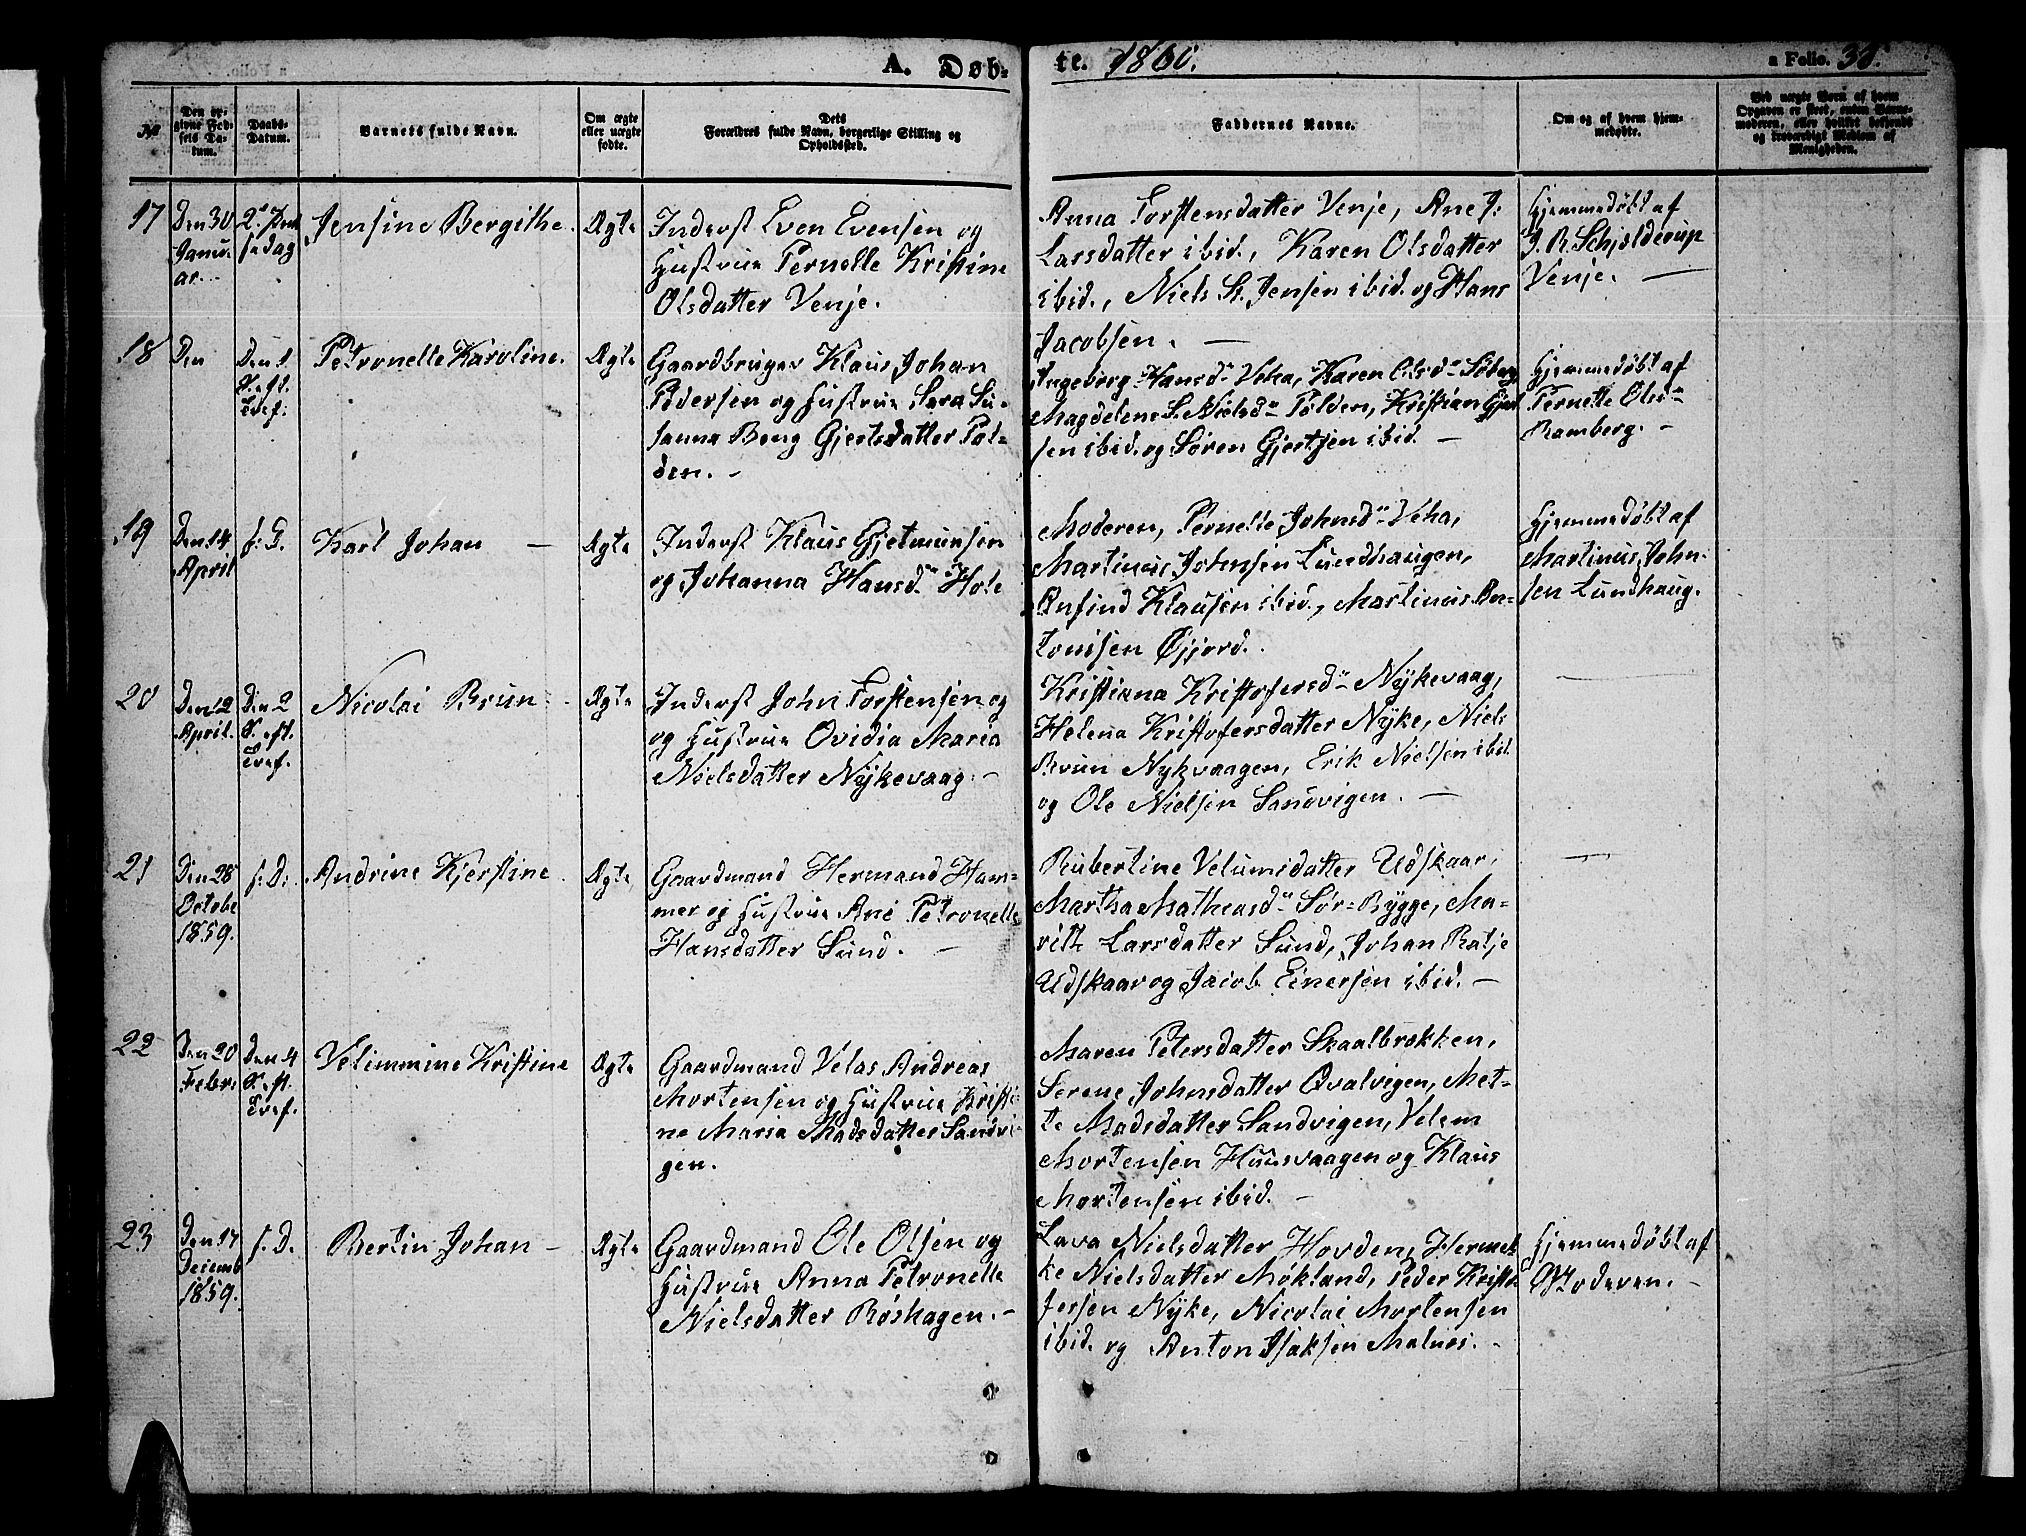 A. Døb-
te. 1860.
a Folio. 31.
No
Den opgivne Fødsels Datum.
Daabs-Datum.
Barnets fulde Navn.
Om ægte eller uægte fødte.
Dets Forældres fulde Navn, borgerlige Stilling og Opholdssted.
Faddernes Navne.
Om og af hvem hjemmedøbte.
17
Den 30
Janu-
ar.
Jensine Bergithe.
Ægte
Inderst Even Evensen og
Hustrue Pernelle Kristine
Olsdatter Venje.
Anna Torstensdatter Venje, Ane J:
Larsdatter ibid., Karen Olsdatter
ibid., Niels St. Jensen ibid. og Hans
Jacobsen. —
Hjemmedøbt af
J. R. Schjelderup
Venje. —
18
Den
Den 1
S. eft.
Tref.
Petronelle Karoline.
Ægte
Gaardbruger Klaus Johan
Pedersen og Hustrue Sara Su-
sanna Berg Gjertsdatter Pol-
den. -
Ingeborg Hansd Veha, Karen Olsd Søberg
Magdelene S. Nielsd Polden, Kristian Gjert
sen ibid. og Søren Gjertsen ibid —
Hjemmedøbt af
Pernette Olsd
Ramberg. -
19
Den 14
April
f: D.
Karl Johan —
Ægte
Inderst Klaus Gjetmunsen
og Johanna Hansd Hole
Moderen, Pernelle Johnsd Veha,
Martinus Johnsen Lundhaugen,
Anfind Klausen ibid., Martinus Bo-
tonisen Øjjord.
Hjemmedøbt af
Martinus John-
sen Lundhaug.
20
Den 12
April.
Den 2
S. eft.
Tref.
Nicolai Brun
Ægte
Inderst John Torstensen og
og Hustrue Ovidia Maria
Nielsdatter Nykevaag. -
Kristiana Kristofersd Nykevaag,
Helena Kristofersdatter Nyke, Niels
Brun Nykvaagen, Erik Nielsen ibid
og Ole Nielsen Sandvigen. —
21
Den 28
Octobe
1859.
f: D:
Andrine Kjerstine
Ægte
Gaardmand Hermand Ham-
mer og Hustrue Ane Petronelle
Hansdatter Sund. —
Rubertine Velumsdatter Udskaar,
Martha Matheasd Sør-Rygge, Ma-
rith Larsdatter Sund, Johan Ratje
Udskaar og Jacob Einersen ibid. —
22
Den 20
Febr.
Den 4
S. eft.
Tref.
Velimmine Kristine
Ægte
Gaardmand Velas Andreas
Mortensen og Hustrue Kristi-
ne Maria Madsdatter Sandvi-
gen.
Maren Petersdatter Skaalbrekken,
Serene Johnsdatter Qvalvigen, Met-
te Madsdatter Sandvigen, Velem
Mortensen Huusvaagen og Klaus
Mortensen ibid. —
23
Den 17
Decemb
1859.
f. D.
Bertin Johan —
Ægte
Gaardmand Ole Olsen og
Hustrue Anna Petronelle
Nielsdatter Røshagen. —
Lava Nielsdatter Hovden, Hermek-
ke Nielsdatter Møkland, Peder Kristo
fersen Nyke, Nicolai Mortensen
ibid. og Anton Isaksen Malnes. -
Hjemmedøbt af
Moderen. -